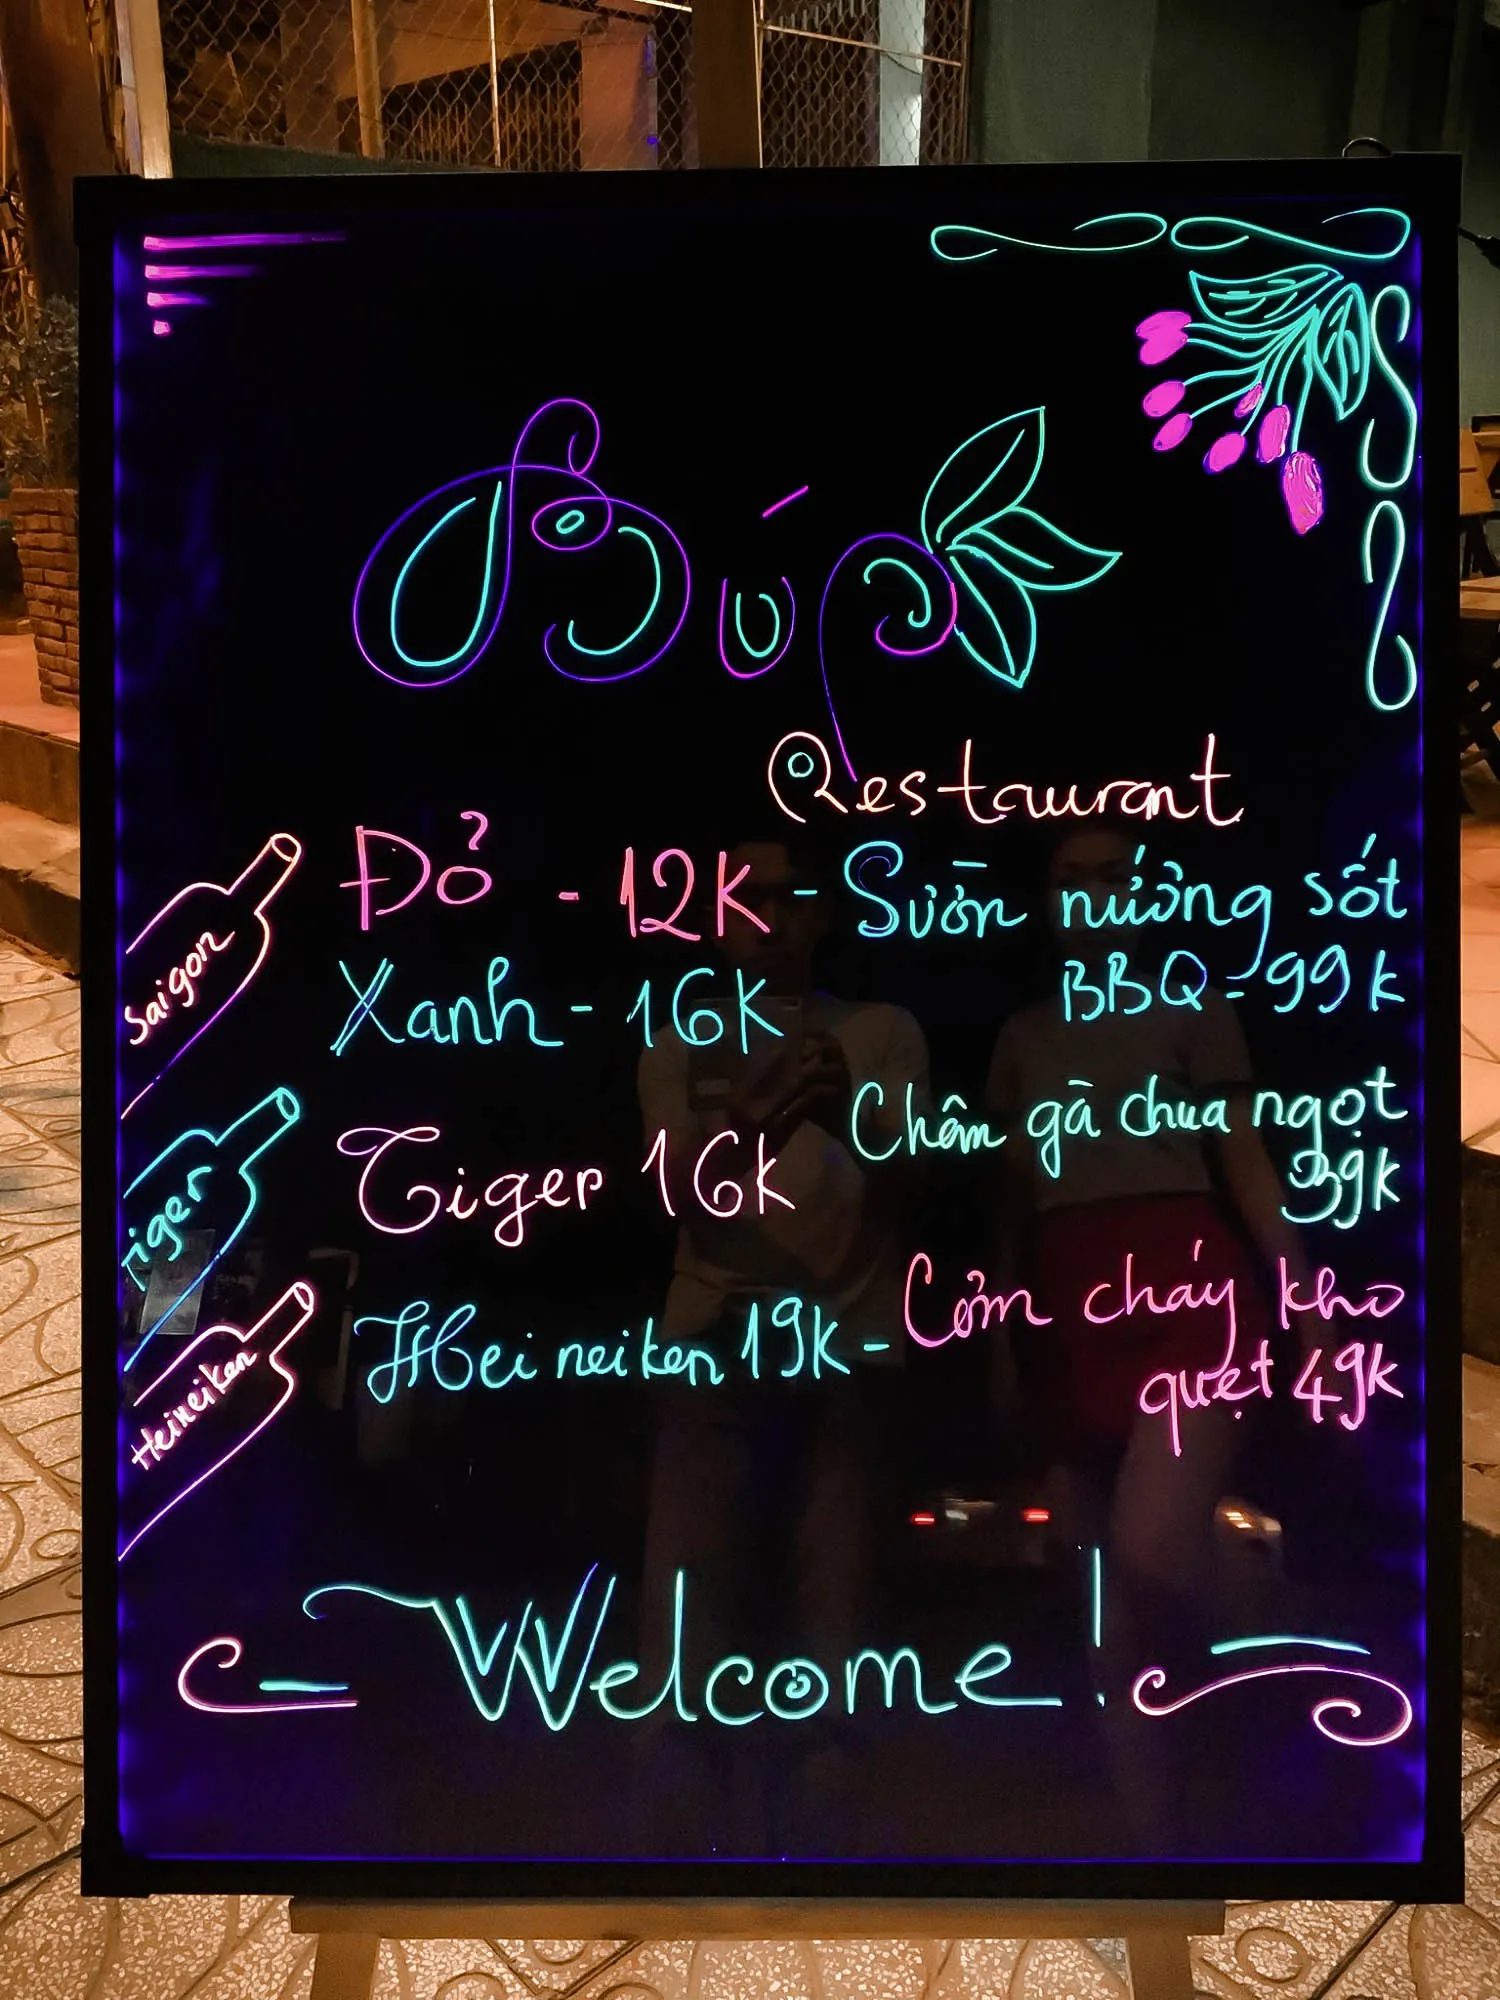 Búp
Restaurant
Saigon
Đỏ - 12K
Xanh - 16K
Tiger
Tiger 16K
Heineiken
Heineiken 19K
- Sườn nướng sốt
BBQ - 99K
Chân gà chua ngọt
39K
- Cơm cháy kho
quẹt 49K
Welcome!